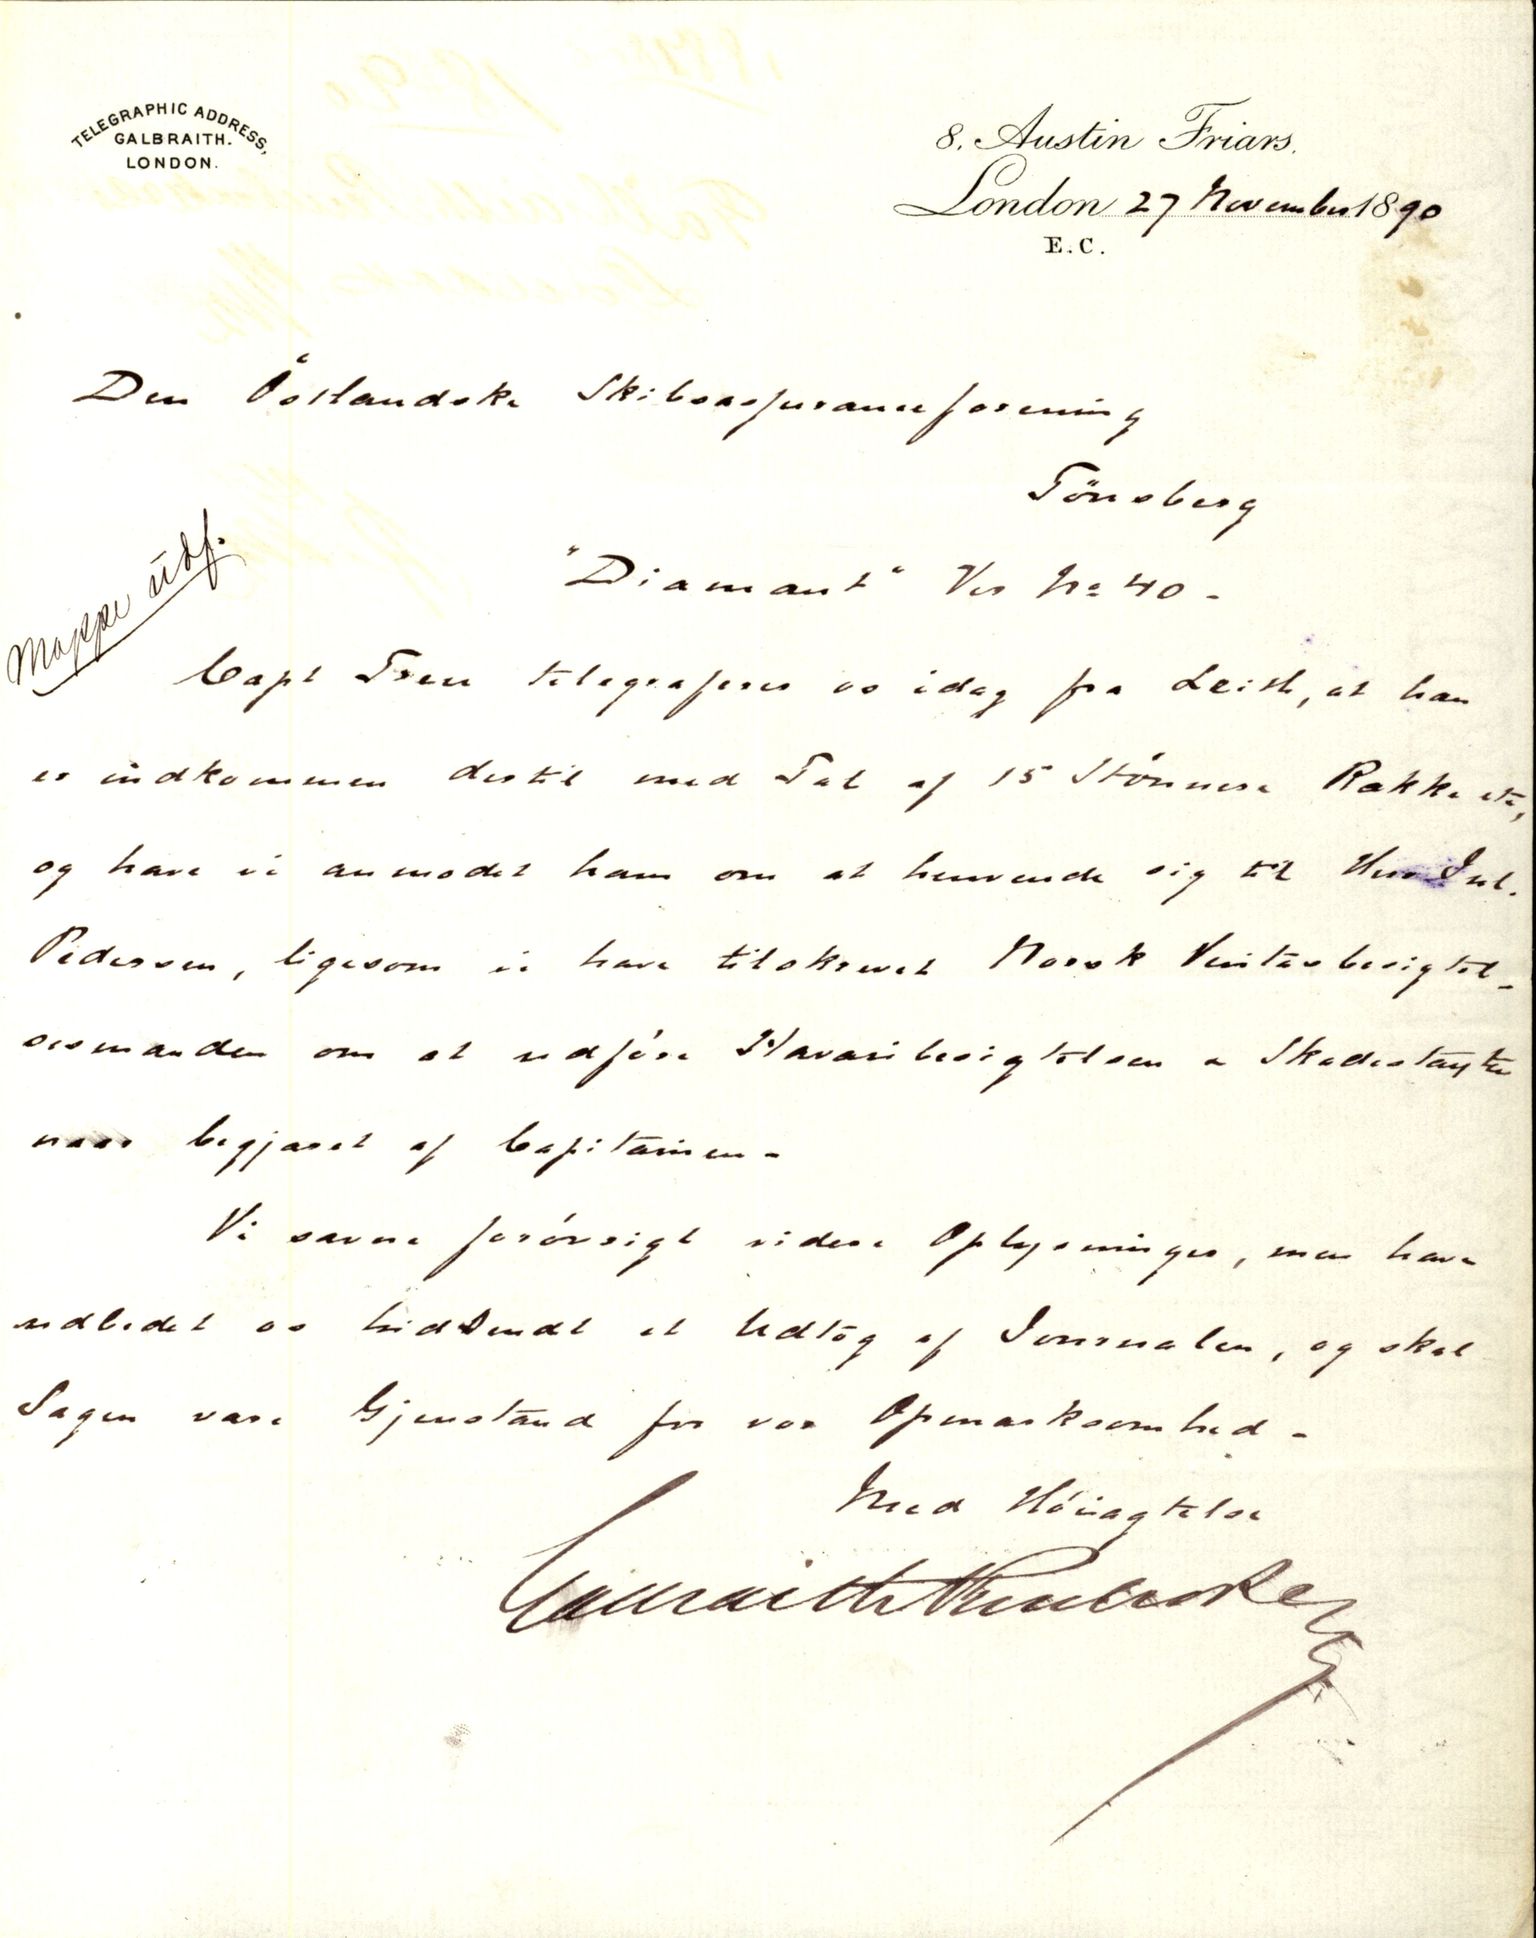 TELEGRAPHIC ADDRESS,
GALBRAITH.
LONDON.
8. Austin Friars.
London 27 November 1890
E.C.
Den Östlandske Skibsassuranceforening
Tönsberg
Mappe udf.
"Diamant" Ver No 40 -
Capt telegraferer os idag fra Leith, at han
er indkommen dertil med Tab af 15 Stönner Række etc,
og have vi anmodet ham om at henvende sig til Herr Jul.
Pedersen, ligesom vi have tilskrevet Norsk Veritasbesigtel-
sesmanden om at udföre Havaribesigtelsen & Skadestaxten
naar begjæret af Capitainen -
Vi savne forövrigt videre Oplysninger, men have
udbedet os hidsendt et Udtog af Journalen, og skal
Sagen være Gjenstand for vor Opmærksomhed -
Med Höiagtelse
Galbraith Pembroke & Co